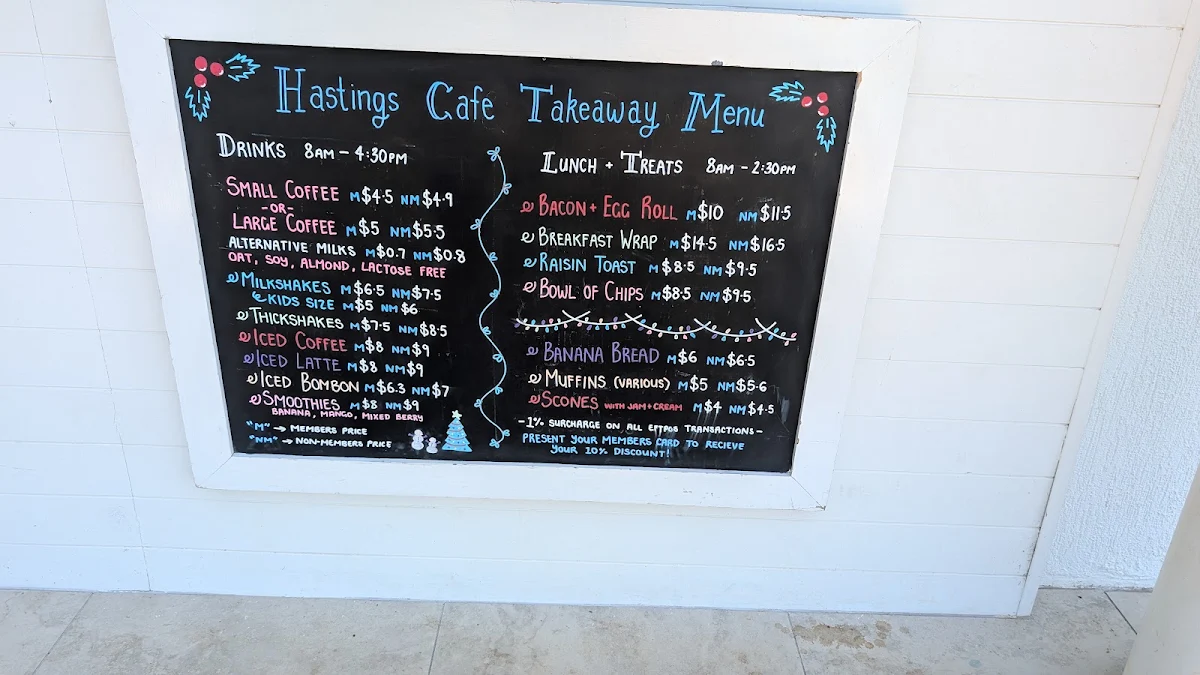 Hastings Cafe Takeaway Menu
Drinks 8am - 4:30pm
Small Coffee M$4.5 NM$4.9
-or-
Large Coffee M$5 NM$5.5
Alternative Milks M$0.7 NM$0.8
Oat, Soy, Almond, Lactose Free
Milkshakes M$6.5 NM$7.5
Kids Size M$5 NM$6
Thickshakes M$7.5 NM$8.5
Iced Coffee M$8 NM$9
Iced Latte M$8 NM$9
Iced Bombon M$6.3 NM$7
Smoothies M$8 NM$9
Banana, Mango, Mixed Berry
"M" → Members Price
"NM" → Non-Members Price
Lunch + Treats 8am - 2:30pm
Bacon + Egg Roll M$10 NM$11.5
Breakfast Wrap M$14.5 NM$16.5
Raisin Toast M$8.5 NM$9.5
Bowl of Chips M$8.5 NM$9.5
Banana Bread M$6 NM$6.5
Muffins (Various) M$5 NM$5.6
Scones with Jam + Cream M$4 NM$4.5
-1% Surcharge on all EFTPOS Transactions-
Present your Members Card to recieve
your 10% discount!